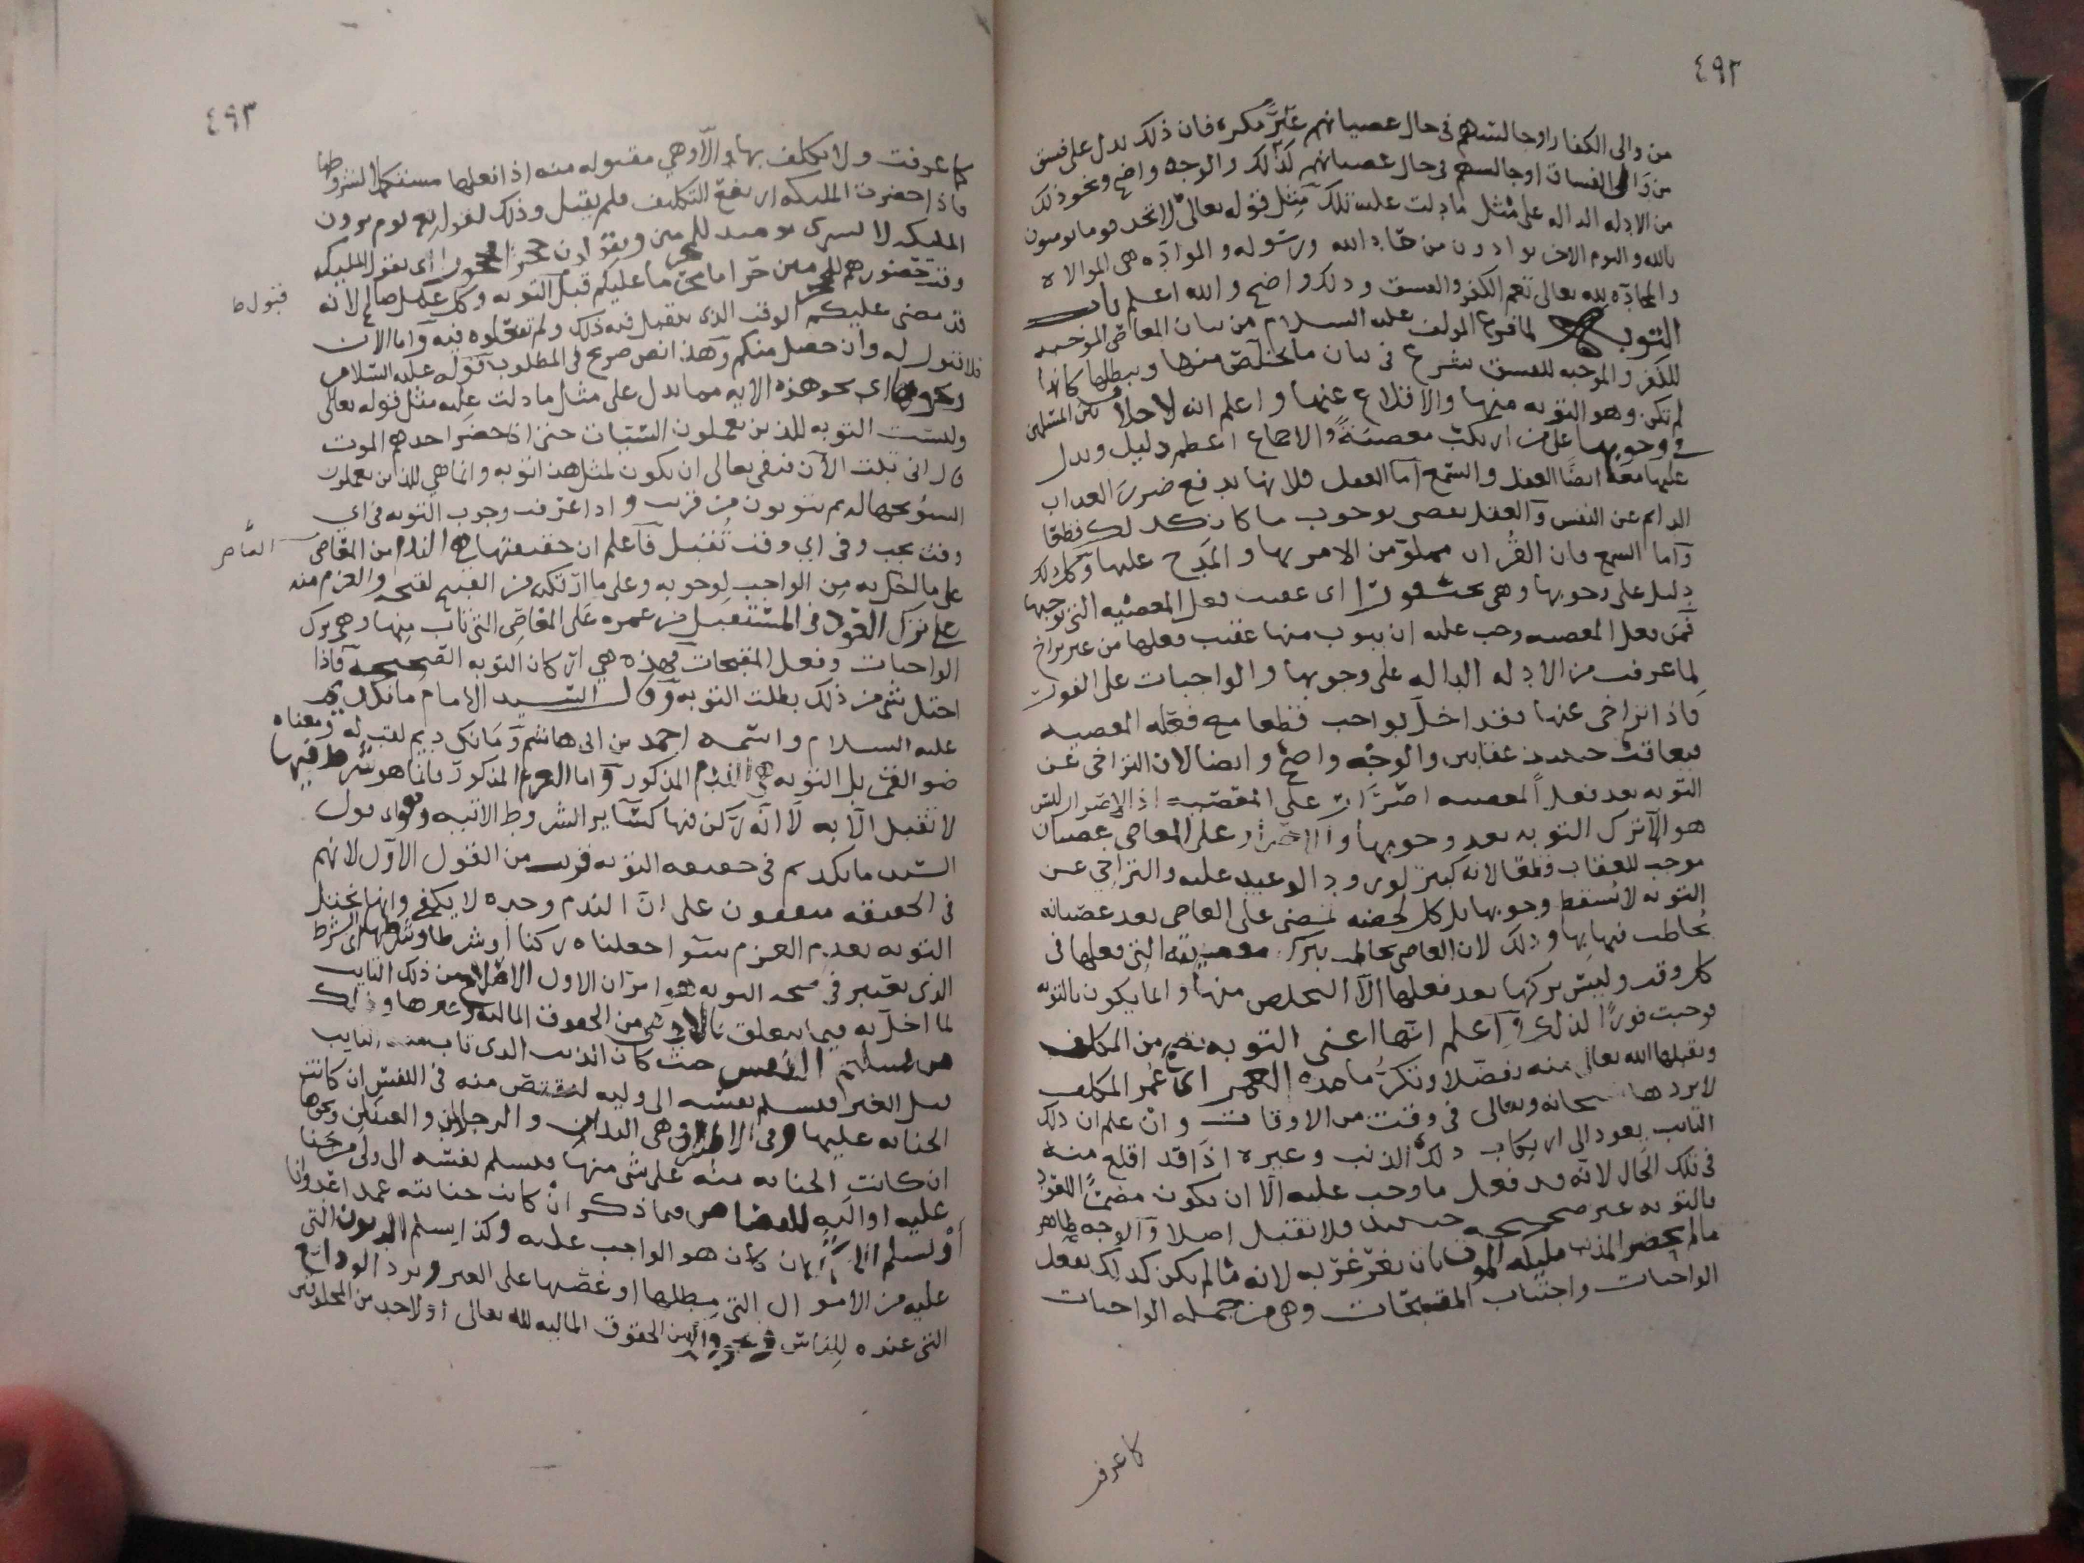 ٤٩٢
من والى الكفار او جالسهم فى حال عصيانهم غير مكره فان ذلك يدل على فسق
من والى الفساق او جالسهم فى حال عصيانهم كذلك والوجه واضح ونحو ذلك
من الادله الداله على مثل ما دلت عليه تلك مثل قوله تعالى لا تجد قوما يومنون
بالله واليوم الاخر يوادون من حاد الله ورسوله والموادّه هى الموالاه
والمحادّه لله تعالى تعم الكفر والفسق وذلك واضح والله اعلم باب
التوبه لما فرغ المولف عليه السلام من بيان المعاصى الموجبه
للكفر والموجبه للفسق شرع فى بيان ما يخلّص منها ويبطلها كانها
لم تكن وهو التوبه منها والاقلاع عنها واعلم انه لا خلاف بين المسلمين
فى وجوبها على من ارتكب معصيةً والاجماع اعظم دليل ويدل
عليها معه ايضًا العقل والسّمع اما العقل فلانها تدفع ضرر العذاب
الدايم عن النفس والعقل يقضى بوجوب ما كان كذلك قطعًا
وأما السمع فان القرآن مملوّ من الامر بها والمدح عليها وكل ذلك
دليل على وجوبها وهى تجب فورًا اى عقيب فعل المعصيه التى توجبها
فمن فعل المعصيه وجب عليه ان يتوب منها عقيب فعلها من غير تراخ
لما عرفت من الادله الداله على وجوبها والواجبات على الفور
فاذا تراخى عنها فقد اخلّ بواجب قطعا مع فعله المعصيه
فيعاقب حينئذ عقابين والوجه واضح وايضا لان التراخى عن
التوبه بعد فعل المعصيه اصرار على المعصيه اذ الاصرار ليس
هو الاّ ترك التوبه بعد وجوبها والاصرار على المعاصى عصيان
موجب للعقاب قطعًا لانه كبير لورود الوعيد عليه والتراخى عن
التوبه لا يُسقط وجوبها بل كل لحظه تمضى على العاصى بعد عصيانه
يُخاطب فيها بها وذلك لان العاصى مخاطب بترك معصيته التى فعلها فى
كل وقت وليس تركها بعد فعلها الاّ التخلص منها وانما يكون بالتوبه
فوجبت فورًا لذلك واعلم انها اعنى التوبه تصح من المكلف
ويقبلها الله تعالى منه تفضّلا وتكرّما مده العمر اى عُمر المكلف
لا يردها سبحانه وتعالى فى وقت من الاوقات وان علم ان ذلك
التايب يعود الى ارتكاب ذلك الذنب وغيره اذا قد اقلع منه
فى تلك الحال لانه قد فعل ما وجب عليه الاّ ان يكون مضمرًا للعود
فالتوبه غير صحيحه حينئذ فلا تقبل اصلا والوجه ظاهر
ما لم يحضر المذنب مليكه الموت بان يغرغر به لانه ما لم يكن كذلك يفعل
الواجبات واجتناب المقبحات وهى من جمله الواجبات
كما عرفت
٤٩٣
كما عرفت ولا يكلف بها الاّ وهى مقبوله منه اذا فعلها مستكمل الشروط
فاذا حضرت المليكه ارتفع التكليف فلم يقبل وذلك لقوله تعالى يوم يرون
المليكه لا بشرى يومئذ للمجرمين ويقولون حجرًا محجورًا اى يقول المليكه
وقت حضورهم للمجرمين حراما محرّما عليكم قبل التوبه وكل عمل صالح لانه
قد مضى عليكم الوقت الذى يقبل فيه ذلك ولم تفعلوه فيه واما الان
فلا قبول له وان حصل منكم وهذا نص صريح فى المطلوب قوله عليه السلام
ونحوها اى نحو هذه الايه مما يدل على مثل ما دلت عليه مثل قوله تعالى
وليست التوبه للذين يعملون السيّيات حتى اذا حضر احدهم الموت
قال انى تبت الآن فنفى تعالى ان يكون لمثل هذا توبه وانما هى للذين يعملون
السوٓء بجهاله ثم يتوبون من قريب واذا عرفت وجوب التوبه فى اي
وقت يجب وفى اي وقت تُقبل فاعلم ان حقيقتها هى الندم من العاصى
على ما اخل به من الواجب لوجوبه وعلى ما ارتكبه من القبيح لقبحه والعزم منه
على ترك العود فى المستقبل من عمره على المعاصى التى تاب منها وهى ترك
الواجبات وفعل المقبحات فهذه هى اركان التوبه الصحيحه فاذا
اختل شى من ذلك بطلت التوبه وقال السيد الامام مانكديم
عليه السلام واسمه احمد بن ابى هاشم ومانكديم لقب له ومعناه
ضوالقمر بل التوبه هى الندم المذكور واما العزم المذكور فانما هو شرط فيها
لا تقبل الاّ به لا انّه ركن فيها كسآير الشروط الاتيه وقول
السيد مانكديم فى حقيقه التوبه قريب من القول الاوّل لانهم
فى الحقيقه متفقون على انّ الندم وحده لا يكفى وانها تختل
التوبه بعدم العزم سوا جعلناه ركنا او شرطا وشرطها اى الشرط
الذى يعتبر فى صحه التوبه هو امران الاول الاصلاح من ذلك التايب
لما اخلّ به فيما يتعلق بالادمى من الحقوق الماليه وغيرها وذلك
من تسليم النفس حيث كان الذنب الذى تاب منه التايب
قتل الغير فيسلم نفسه الى وليه ليقتصّ منه فى النفس ان كانت
الجنايه عليها وفى الاطراف وهى اليدان والرجلان والعينين ونحوها
ان كانت الجنايه منه على شى منها فيسلم نفسه الى ولى من جنا
عليه او اليه للقصاص فيما ذكر ان كانت جنايته عمد اعدوانا
كان هو الواجب عليه وكذا يسلم الديون التى
عليه من الاموال التى مطلها او غصبها على الغير ويرد الودايع
التى عنده للناس وغير ذلك من الحقوق الماليه لله تعالى او لاحد من المخلوقين
قبول ط